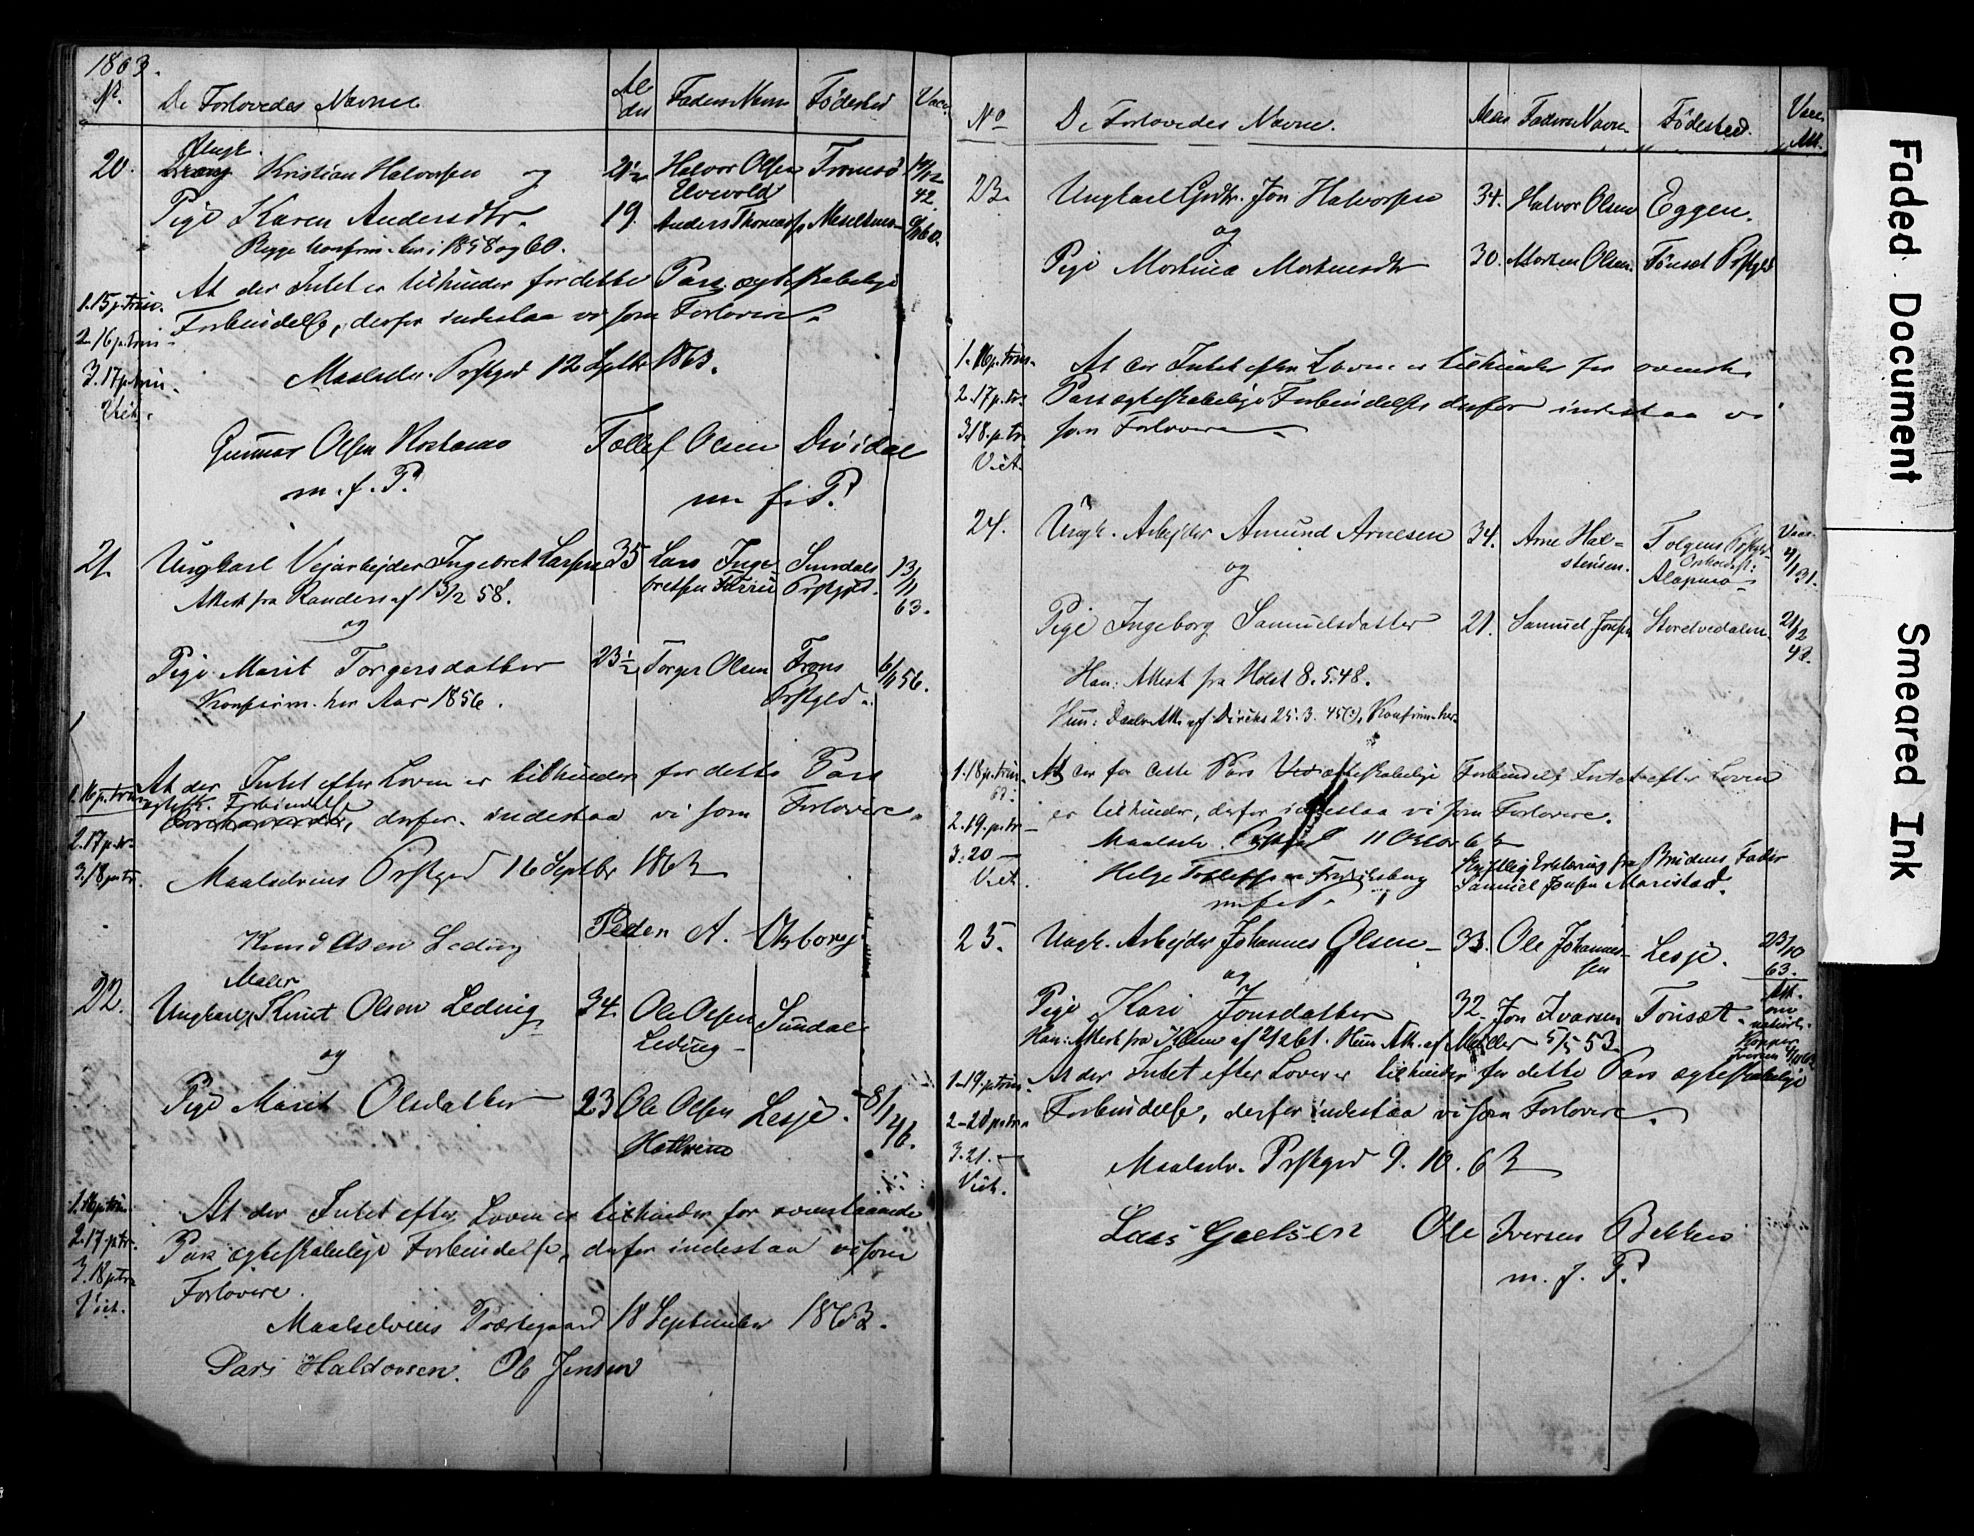 1863.
Nr. De Forlovedes Navne Al der Faders Navn Fødested Vacc.
20. Ungk. Kristian Halvorsen og 21½ Halvor Olsen Tromsø
42.
Pige Karen Andersdtr. 19. Anders Thomas
Begge konfirm. her i 1858 og 60.
At der Intet er tilhinder for dette Pars ægteskabelige
1. 15 p. Trin. Forbindelse, derfor indestaa vi som Forlovere.
2. 16 p. trin.
3. 17 p. trin. Maalselv. Prstgjd 12 Septbr 1863.
Viet.
Gunnar Olsen Tollef Olsen Dividal
m. f. P. m. f. P.
21. Ungkarl Vejarbejder Ingebret Larsen 35 Lars Inge- Sundals 13/11
Attest fra Randers af 13/2 58. bretsen Prstgjld. 63.
og
Pige Marit Torgersdatter 23½ Torger Olsen Trons 6/11 56.
Konfirm. her Aar 1856. Prstgjld.
At der Intet efter Loven er tilhinder for dette Pars
1. 16 p. trin. ægtesk. Forbindelse
derfor indestaa vi som Forlovere.
2. 17 p. tr.
3. 18 p. tr. Maalselvens Prstgjd 16 Septbr 1863
Knud Olsen Leding Peder A.
Maler
22. Ungkarl Knut Olsen Leding 34. Ole Olsen Sundal
og Leding
Pige Marit Olsdatter 23 Ole Olsen Lesje. 8/1
46.
1. 16 p. trin. At der Intet efter Loven er tilhinder for ovenstaaende
2. 17 p. tr. Pars ægteskabelige Forbindelse, derfor indestaa vi som
3. 18 p. tr. Forlovere.
Viet.
Maalselvens Præstegaard 18 September 1863.
Lars Haldorsen. Ole Jensen
No De Forlovedes Navne. Alder Faders Navn Fødested. Vacc. Att.
23. Ungkarl Grdbr. Jon Halvorsen 34. Halvor Olsen Eggen.
og
Pige Martina Mortensdtr 30. Morten Olsen. Tønset Prstgjld
1. 16 p. trin. At der Intet efter Loven er tilhinder for ovenst.
2. 17 p. tr. Pars ægteskabelige Forbindelse derfor indestaa vi
3. 18. p. tr. som Forlovere
Viet.
24. Ungk. Arbejder Amund Arnesen 34. Arne Hal- Tolgens Prstgjld Vacc.
og stensen. 31.
Pige Ingeborg Samuelsdatter 21. Samuel Jonsen 21/12
42.
Han: Attest fra Holst 8.5.48.
Hun: 25.3.45 Konfirm. her
1. 18 p. trin. At der for dette Pars ægteskabelige Forbindelse Intet efter Loven
2. 19. p. tr. er tilhinder, derfor indestaa vi som Forlovere.
3. 20 — Maalselv. Prstgjd 11 Octor 63
Viet. Helge Tollefsen Fredriksberg Skriftlig Erklæring fra Brudens Fader
m. f. P. Samuel Jonsen Maristad.
25. Ungk. Arbejder Johannes Olsen 33. Ole Johannes- Lesje. 23/10
og sen 63.
Pige Kari Jonsdatter 32. Jon Ivarsen Tønsæt Att. om
Han: Attest fra Hun Att. af Møller 5/5 53. naturl. Kopper
1. 19. p. trin. At der Intet efter Loven er tilhinder for dette Pars ægteskabelige
2. 20 p. trin Forbindelse, derfor indestaa vi som Forlovere.
3. 21. —
Viet. Maalselv. Prstgjd 9. 10. 63
Lars Ole Iversen Bakken
m. f. P.
Faded Document
Smeared Ink